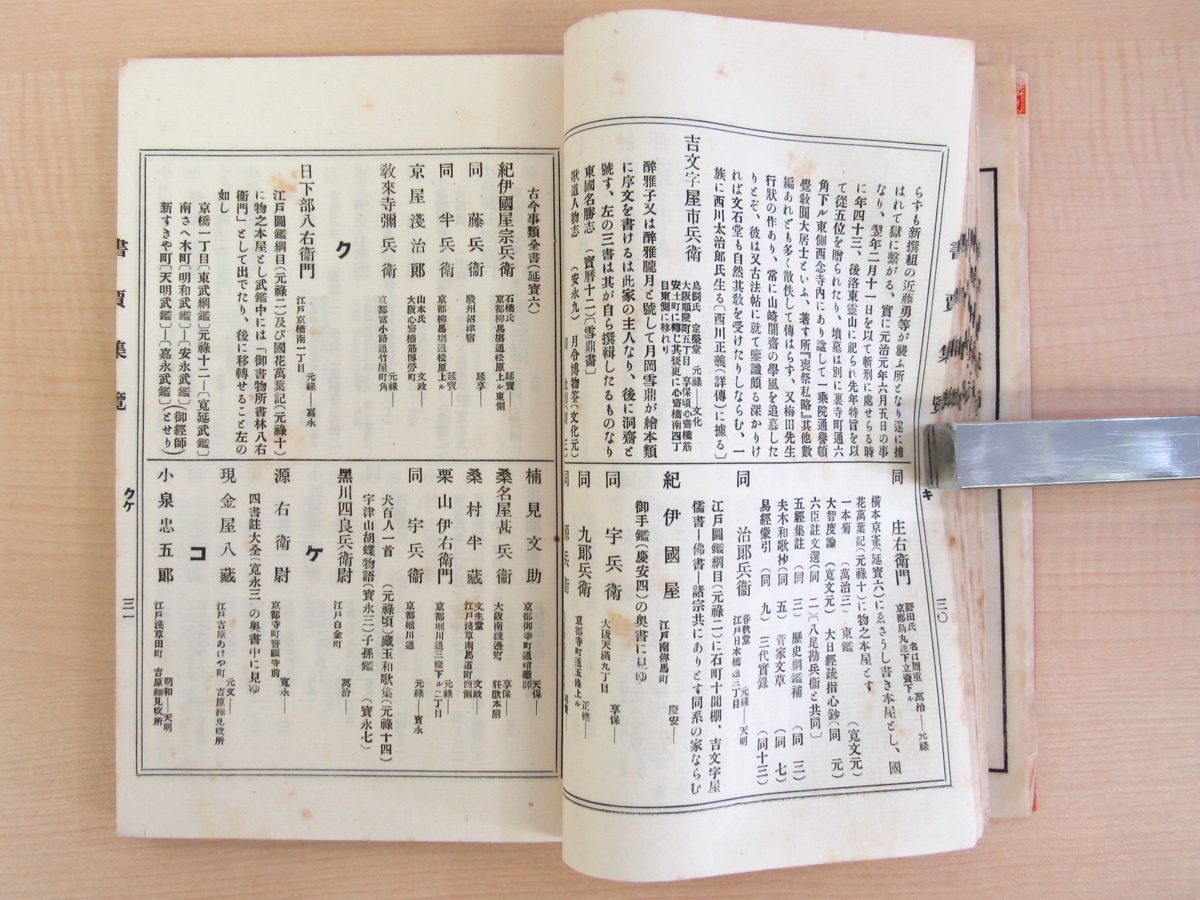 らずも新撰組の近藤勇等が襲ふ所となり遂に捕
はれて獄に繫がる、實に元治元年六月五日の事
なり、翌年二月十一日を以て斬刑に處せらる時
に年四十三、後洛東靈山に祀られ先年特旨を以
て從五位を贈られたり、墳墓は別に裏寺町通六
角下ル東側西念寺内にあり諡して一乘院通譽頓
覺敎圓大居士といふ、著す所『喪祭私略』其他數
編あれども多く散佚して傳はらず、又梅田先生
行狀の作あり、常に山崎闇齋の學風を追慕した
りとぞ、彼は又古法帖に就て鑒識頗る深かりけ
れば文石堂も自然其敎を受けたりしならむ、一
族に西川太治郞氏生る〔西川正義(詳傳)に據る〕
吉文字屋市兵衞
鳥飼氏、定榮堂 元祿—文化
大阪順慶町五丁目、享保頃心齋橋筋
安土町に轉じ其後更に心齋橋南四丁
目東側に移れり
醉雅子又は醉雅朧月と號して月岡雪鼎が繪本類
に序文を書けるは此家の主人なり、後に洞齋と
號す、左の三書は其が自ら撰輯したるものなり
東國名勝志 (寶曆十二)〔雪鼎畵〕
歌道人物志 (安永九) 月令博物筌(文化元)
同 庄右衞門
野田氏 名は周重 萬治—元祿
京都烏丸通下立賣下ル
橋本京雀(延寶六)にゑさうし書き本屋とし、國
花萬葉記(元祿十)に物之本屋とす
一本菊 (萬治三) 東鑑 (寬文元)
大智度論 (寬文元) 大日經疏指心鈔(同 元)
六臣註文選(同 二)〔八尾勘兵衞と共同〕
五經集註 (同 三) 歷史綱鑑補 (同 三)
夫木和歌抄(同 五) 菅家文草 (同 七)
易經蒙引 (同 九) 三代實錄 (同十三)
同 治郞兵衞
春秋堂 元祿—天明
江戶日本橋通三丁目
江戶圖鑑綱目(元祿二)に石町十間棚、吉文字屋
儒書—佛書—諸宗共にありとす同系の家ならむ
紀伊國屋 江戶南傳馬町 慶安—
御手鑑(慶安四)の奥書に見ゆ
同 宇兵衞 大阪天滿九丁目 享保—
同 九郞兵衞 京都寺町通五條上ル 正德—
同 源兵衞
キ
三〇
書賈集覽
古今事類全書(延寶六)
紀伊國屋宗兵衞
石橋氏 延寶—
京都柳馬塲通松原上ル東側
同 藤兵衞 駿州沼津宿 延享—
同 半兵衞 京都柳馬塲通松原上ル 延寶—
京屋淺治郞
山本氏 文政—
大阪心齋橋筋博勞町
敎來寺彌兵衞
元祿—
京都富小路通竹屋町角
ク
日下部八右衞門
元祿—嘉永
江戶京橋南一丁目
江戶圖鑑綱目(元祿二)及び國花萬葉記(元祿十)
に物之本屋とし武鑑中には「御書物所書林八右
衞門」として出でたり、後に移轉せること左の
如し
京橋一丁目〔東武綱鑑〕元祿十二—〔寬延武鑑〕
南さへ木町〔明和武鑑〕—〔安永武鑑〕(御經師)
新すきや町〔天明武鑑〕—〔嘉永武鑑〕(とせり)
楠見文助
天保—
京都御幸町通蛸藥師
桑名屋甚兵衞
享保—
大阪南渡邊町 狂歌本屋
桑村半藏
文生堂 文政—
江戶淺草南馬道町西側
栗山伊右衞門
元祿—
京都堀川通三條下ル二丁目
同 宇兵衞 京都堀川通 元祿—寶永
犬百人一首 (元祿頃)藏玉和歌集(元祿十四)
宇津山胡蝶物語(寶永三)子孫鑑 (寶永七)
黑川四良兵衞尉 江戶白金町 萬治—
ケ
源右衞尉 京都寺町誓願寺前 寬永—
四書註大全(寬永三)の奥書中に見ゆ
現金屋八藏
元文—
江戶吉原あげや町 吉原細見改所
コ
小泉忠五郞
明和—天明
江戶淺草田町 吉原細見改所
クケ
三一
書賈集覽